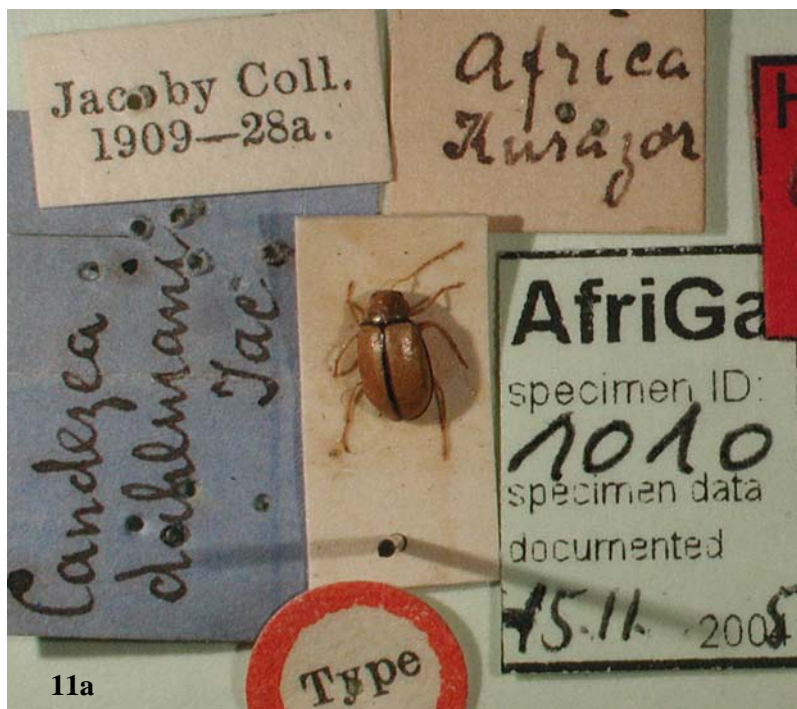 Jacoby Coll.
1909—28a.
Africa
H
Candezea
Jac.
AfriGa
specimen ID:
1010
specimen data
documented
15.11. 2005
Type
11a